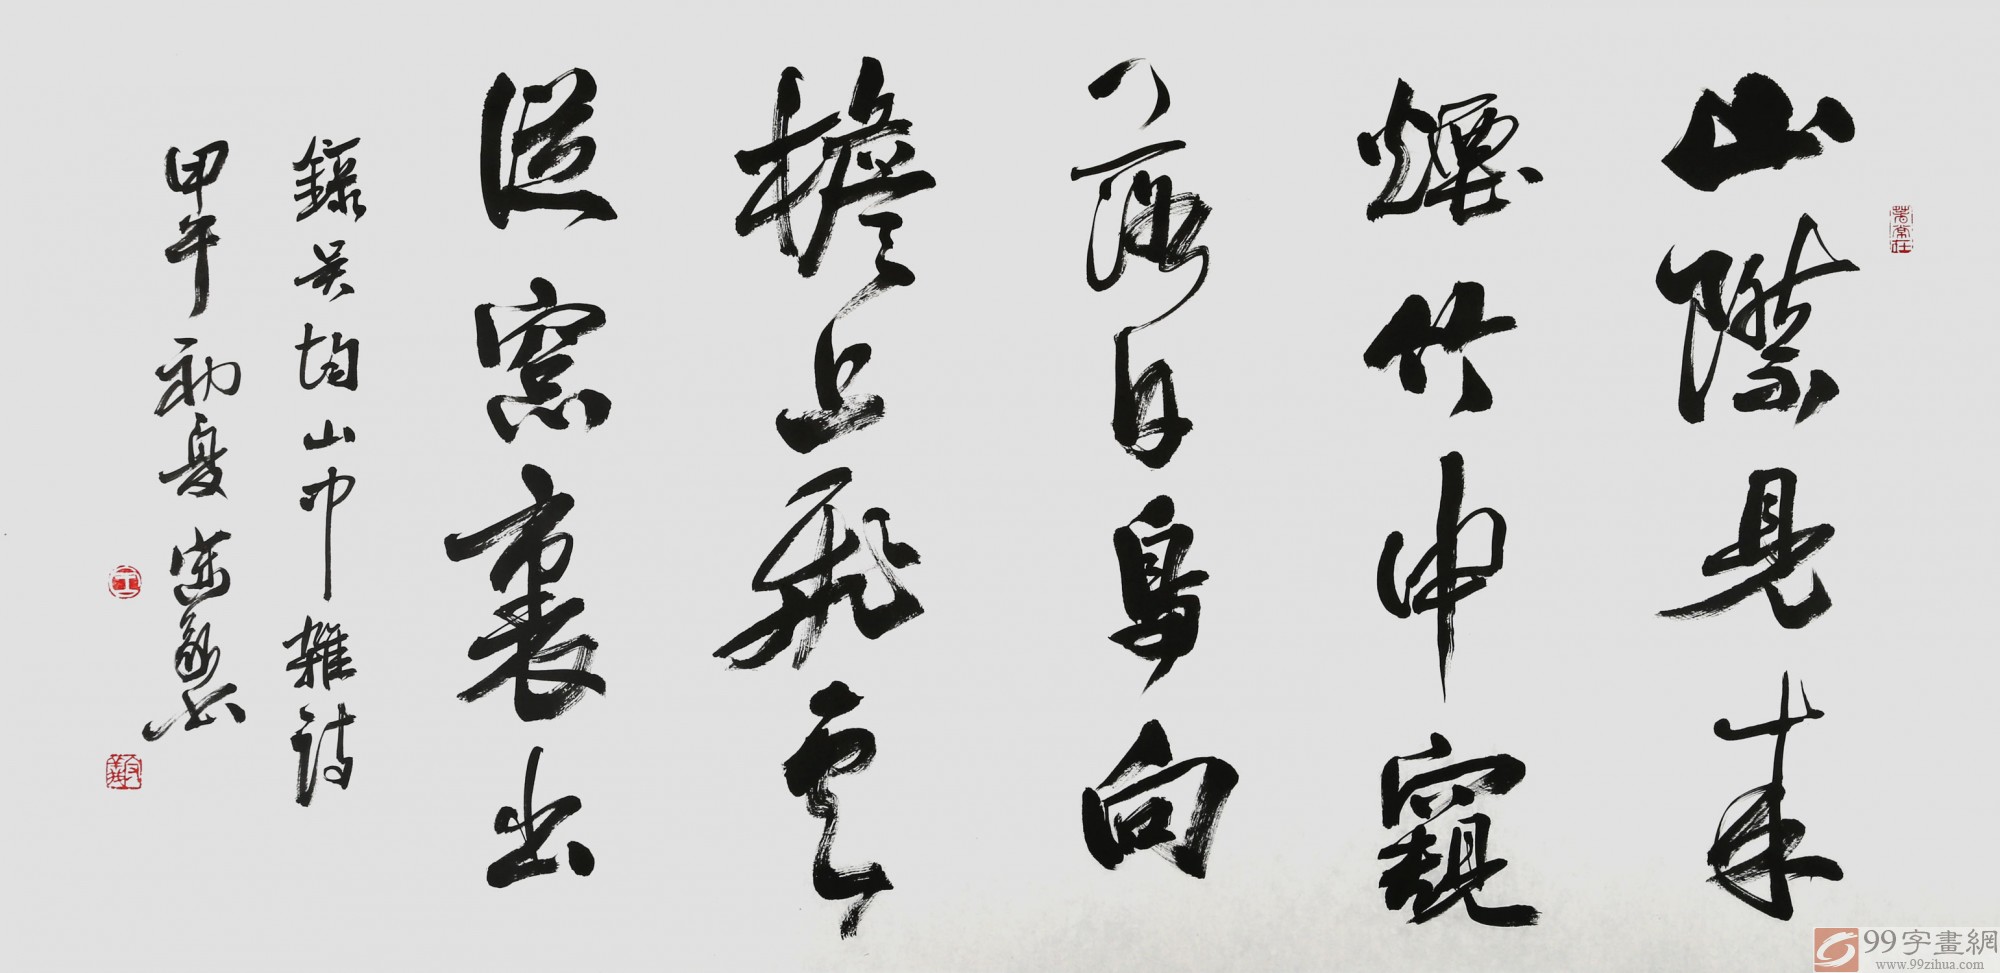 山際見来
煙竹中窺
落日鳥向
檐上飛云
從窻裏出
錄吴均山中雜詩
甲午初夏
99字畫網
www.99zihua.com